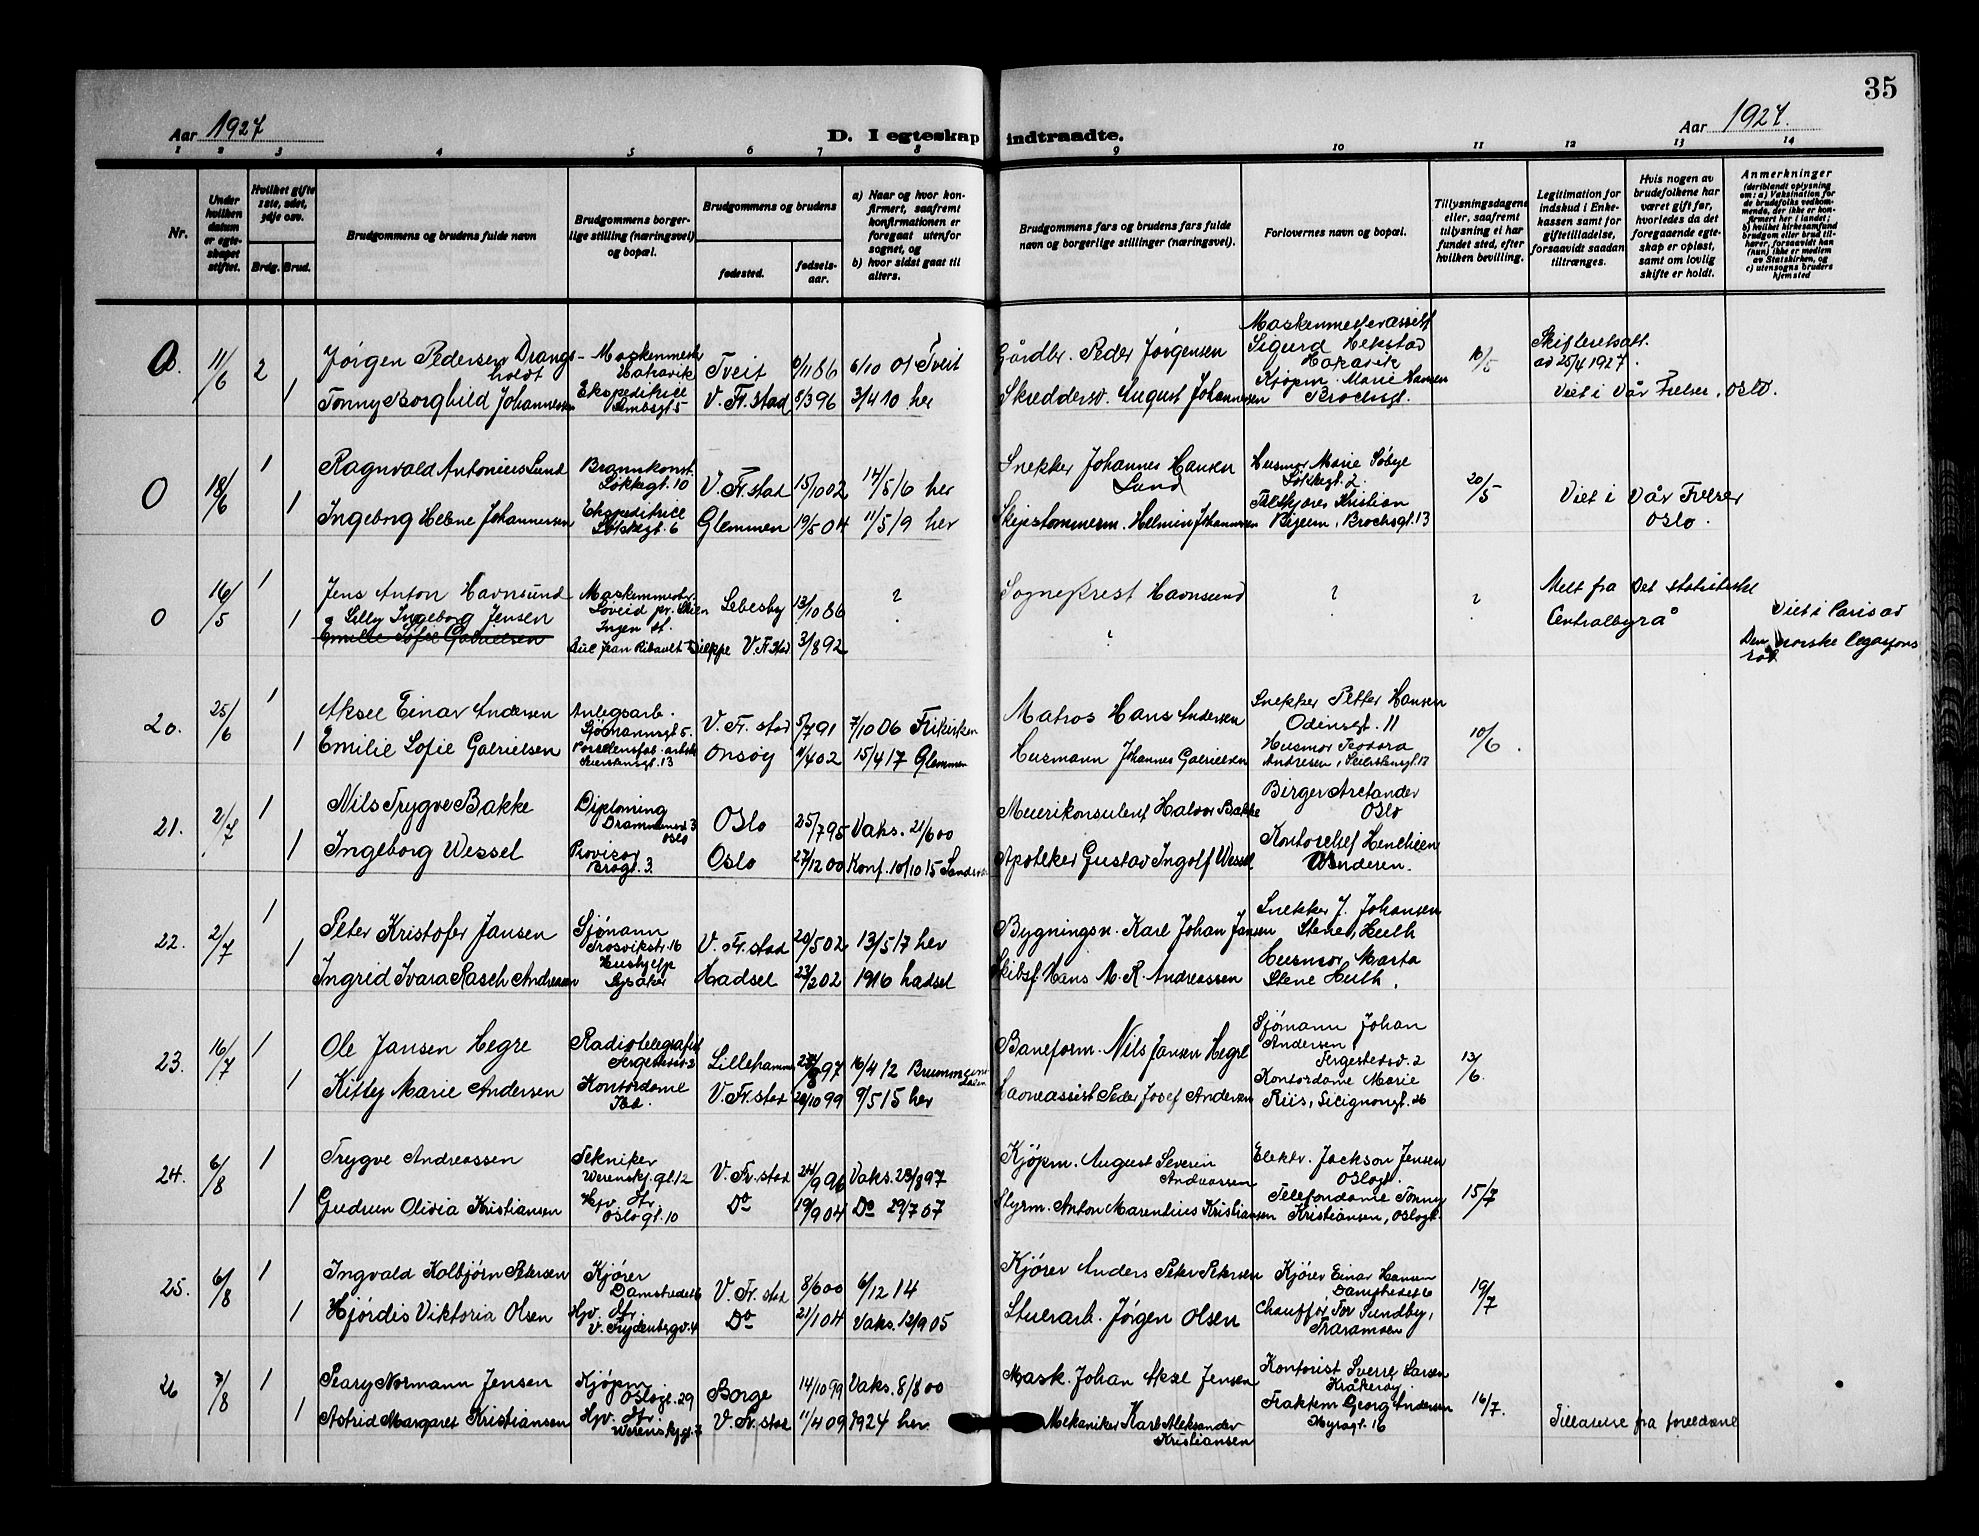 35
Aar 1927
D. I egteskap indtraadte.
Aar 1927.
1 2 3 4 5 6 7 8 9 10 11 12 13 14
Nr.
Under hvilken datum er egteskapet stiftet.
Hvilket gifte 1ste, 2det, 3dje osv.
Brdg. Brud.
Brudgommens og brudens fulde navn
Brudgommens borgerlige stilling (næringsvei) og bopæl.
Brudgommens og brudens
fødested.
fødselsaar.
a) Naar og hvor konfirmert, saafremt konfirmationen er foregaat utenfor sognet, og
b) hvor sidst gaat til alters.
Brudgommens fars og brudens fars fulde navn og borgerlige stillinger (næringsvei).
Forlovernes navn og bopæl.
Tillysningsdagens eller, saafremt tillysning ei har fundet sted, efter hvilken bevilling.
Legitimation for indskud i Enkekassen samt for giftetilladelse, forsaavidt saadan tiltrænges.
Hvis nogen av brudefolkene har været gift før, hvorledes da det foregaaende egteskap er opløst, samt om lovlig skifte er holdt.
Anmerkninger
(deriblandt oplysning om: a) Vaksination for de brudefolks vedkommende, der ikke er konfirmert her i landet; b) hvilket kirkesamfund brudgom eller brud tilhører, forsaavidt han (hun) ikke er medlem av Statskirken, og c) utensogns bruders hjemsted
0. 11/6 2 Jørgen Pedersen Drangsholdt Maskenmestr Hakavik Tveit 9/11 86 6/10 01 Tveit Gårdbr. Peder Jørgensen Maskenmesterassist Sigurd Hakavik 10/5 Skifteretsatt. av 25/4 1927.
1 Tonny Borghild Johannessen Ekspeditrice V. Fr.stad 8/3 96 3/4 10 her Skreddersv. August Johannessen Kjøpm. Marie Hansen Brochsgt. Viet i Vår Frelser, Oslo.
0 18/6 1 Ragnvald Antonius Lund Brannkonst. Løkkegt. 10 V. Fr.stad 15/10 02 14/5 16 her Snekker Johannes Hansen Lund Husmor Marie Søbye Løkkegt. 2. 20/5 Viet i Vår Frelser Oslo.
1 Ingeborg Helene Johannessen Ekspeditrice Løkkegt. 6 Glemmen 19/5 04 11/5 19 her Skipstømmerm. Helmin Johannessen Kristian Brochsgt. 13
0 16/5 1 Jens Anton Havnsund Maskinmester Løveid pr. Skien Lebesby 13/10 86 ? Sogneprest Havnsund ? ? Melt fra Det statistiske Centralbyrå Viet i Paris av Den norske legasjons råd
1 Lilly Ingeborg Jensen Ingen st. Rue Jean Ribault Dieppe V. Fr.stad 3/8 92
Emilie Sofie Gabrielsen
20. 25/6 1 Aksel Einar Andersen Anlegsarb. Sjømannsgt 5 V. Fr. stad 5/7 91 7/10 06 Frikirken Matros Hans Andersen Snekker Petter Hansen Odinsgt. 11 10/6.
1 Emilie Sofie Gabrielsen Porselensfab. arbeid. Seierstensgt. 13 Onsøy 11/4 02 15/4 17 Glemmen Husmann Johannes Gabrielsen Husmor Teodora Andresen, Seierstensgt. 17
21. 2/7 1 Nils Trygve Bakke Diploming Drammensv. 3 Oslo Oslo 25/7 95 Vaks. 21/6 00 Meierikonsulent Halvor Bakke Birger Arctander Oslo
1 Ingeborg Wessel Provisor Brogt. 3. Oslo 27/12 00 Konf. 10/10 15 Apoteker Gustav Ingolf Wessel Kontorchef Henrichsen Vinderen.
22. 2/7 1 Peter Kristofer Jansen Sjømann Trosvikstr. 16 V. Fr. stad 20/5 02 13/5 17 her Bygningsn. Karl Johan Jansen Snekker J. Johansen Stene, Huth
1 Ingrid Ivara Rasch Andreassen Hushjelp Lysaker Hadsel 23/2 02 1916 hadsel Skibsf. Hans M. R. Andreassen Husmor Marta Stene Huth.
23. 16/7 1 Ole Jansen Hegre Radiotelegrafist Tergestedsv. 2 Lillehammer 23/8 97 16/4 12 Baneform. Nils Jansen Hegre Sjømann Johan Andersen Tergestedsv. 2 13/6.
1 Kitley Marie Andersen Kontordame Ibd. V. Fr. stad 28/10 99 9/5 15 her Havneassist Peder Josef Andersen Kontordame Marie Riis, Glitignongt. 26
24. 6/8 1 Trygve Andreassen Tekniker Werenskj. gt 12 V. Fr. stad 24/9 96 Vaks. 23/8 97 Kjøpm. August Severin Andreassen Elektr. Jackson Jensen Oslogt. 15/7
1 Gudrun Olivia Kristiansen Hjv. dtr Oslogt. 10 Do 19/9 04 Do 29/7 07 Styrm. Anton Marentius Kristiansen Telefondame Tonny Kristiansen, Oslogt.
25. 6/8 1 Ingvald Kolbjørn Petersen Kjører Damstredet 6 V. Fr. stad 8/6 00 6/12 14 Kjører Anders Peter Petersen Kjører Einar Hansen Damstredet 6 19/7
1 Hjørdis Viktoria Olsen Hjv. dtr. V. Frydenbergv. 4 Do 21/1 04 Vaks. 12/9 05 Stuerarb. Jørgen Olsen Chauffør Tor Sundby, Traramsen
26 3/8 1 Peary Normann Jensen Kjøpm. Oslogt. 29 Borge 14/10 99 Vaks. 8/8 00 Mask. Johan Aksel Jensen Kontorist Sverre Larsen Kråkerøy 16/7.
1 Astrid Margaret Kristiansen Hjv. dtr. Werenskjgt. 7 V. Fr. stad 11/4 09 1924 her. Mekaniker Karl Aleksander Kristiansen Georg Andersen Myragt. 16 Tillatelse fra foreldrene